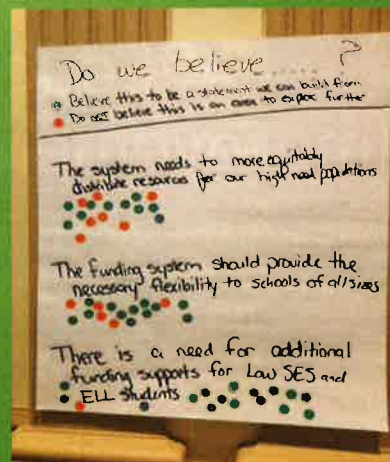 Do we believe ..... ?
Believe this to be a statement we can build from
Do NOT believe this is an area to explore further
The system needs to more equitably
distribute resources for our high need populations
The funding system should provide the
necessary flexibility to schools of all sizes
There is a need for additional
funding supports for Low SES and
ELL students